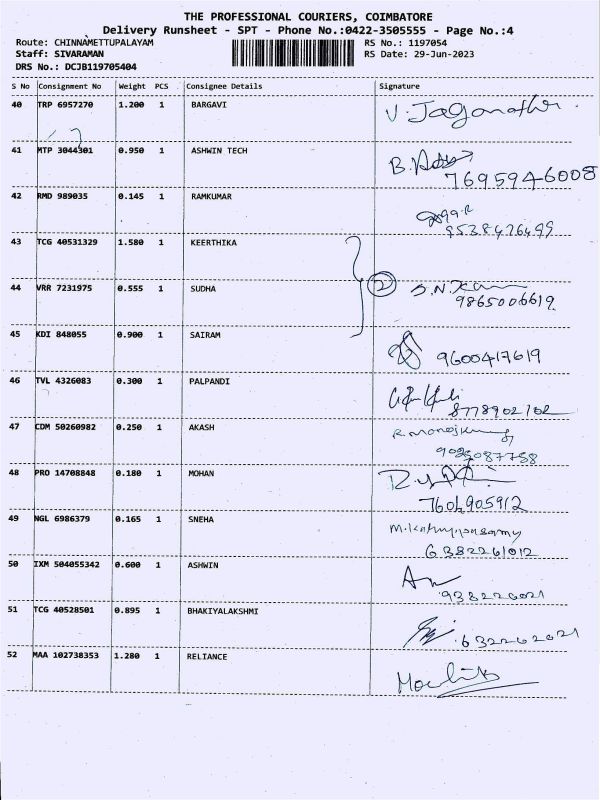 THE PROFESSIONAL COURIERS, COIMBATORE
Delivery Runsheet - SPT - Phone No.:0422-3505555 - Page No.:4
Route: CHINNAMETTUPALAYAM RS No.: 1197054
Staff: SIVARAMAN RS Date: 29-Jun-2023
DRS No.: DCJB119705404
S No Consignment No Weight PCS Consignee Details Signature
40 TRP 6957270 1.200 1 BARGAVI
41 MTP 3044301 0.950 1 ASHWIN TECH
7695946008
42 RMD 989035 0.145 1 RAMKUMAR
9538476499
43 TCG 40531329 1.580 1 KEERTHIKA
44 VRR 7231975 0.555 1 SUDHA 2
9865006619
45 KDI 848055 0.900 1 SAIRAM
9600417619
46 TVL 4326083 0.300 1 PALPANDI
8778902102
47 CDM 50260982 0.250 1 AKASH
48 PRO 14708848 0.180 1 MOHAN
7604905912
49 NGL 6986379 0.165 1 SNEHA
6382261012
50 IXM 504055342 0.600 1 ASHWIN
51 TCG 40528501 0.895 1 BHAKIYALAKSHMI
52 MAA 102738353 1.280 1 RELIANCE